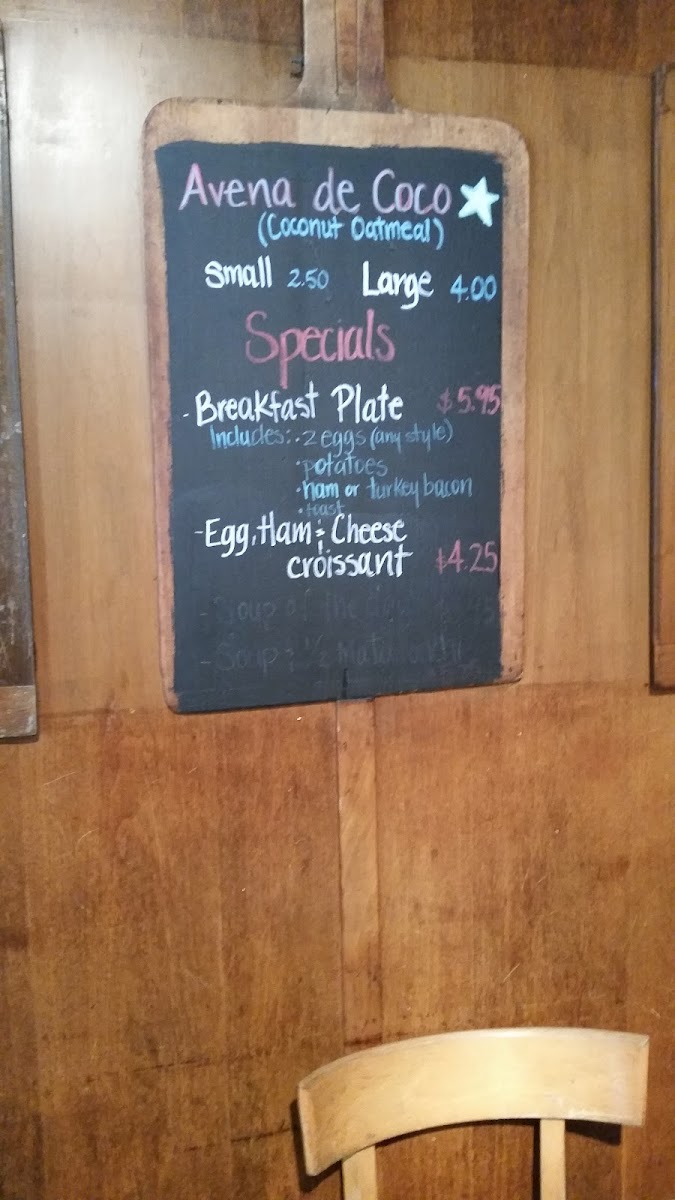 Avena de Coco
(Coconut Oatmeal)
Small 2.50 Large 4.00
Specials
- Breakfast Plate $5.95
Includes: · 2 eggs (any style)
· potatoes
· ham or turkey bacon
· toast
- Egg, Ham & Cheese
croissant $4.25
- Soup of the day
- Soup & 1/2